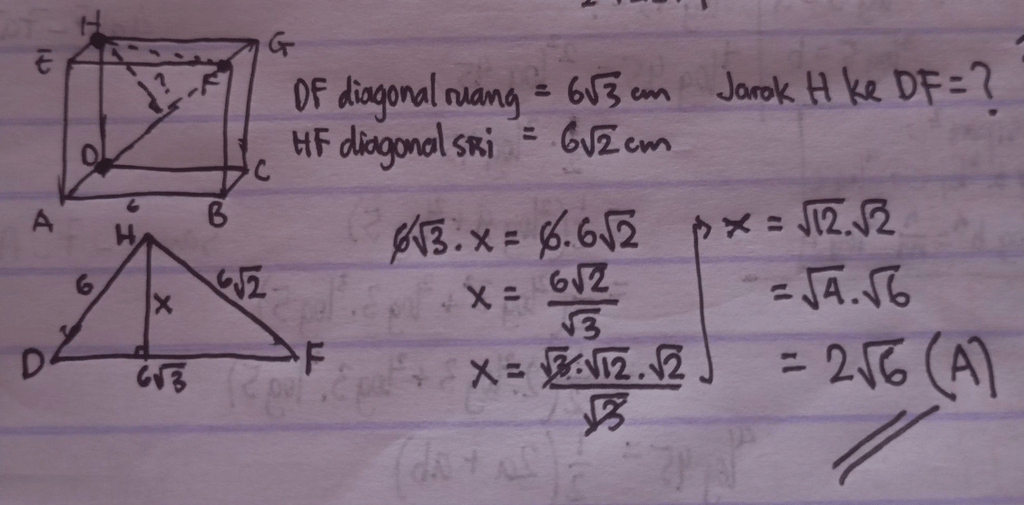 H
G
E
F
?
D
C
A
6
B
DF diagonal ruang = 6√3 cm
Jarak H ke DF = ?
HF diagonal sisi = 6√2 cm
H
6
6√2
x
D
6√3
F
6√3 . x = 6 . 6√2
x = 6√2/√3
x = √3.√12.√2/√3
x = √12.√2
= √4.√6
= 2√6 (A)